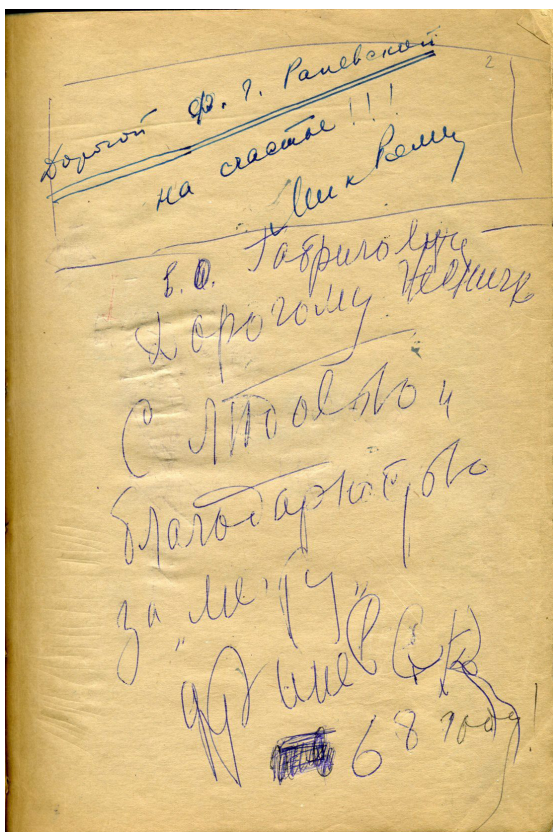 Дорогой Ф. Г. Раневской
2
на счастье!!!
Мих Ромм
Габриловичу
Дорогому
С любовью и
благодарностью
за „мечту„
Раневск
68 года!